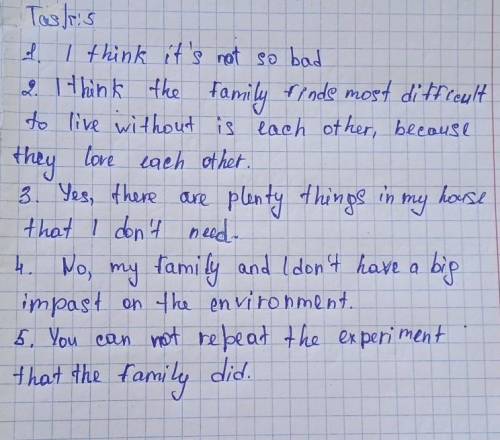 Task:5
1. I think it's not so bad
2. I think the family finds most difficult
to live without is each other, because
they love each other.
3. Yes, there are plenty things in my house
that I don't need.
4. No, my family and I don't have a big
impast on the environment.
5. You can not repeat the experiment
that the family did.